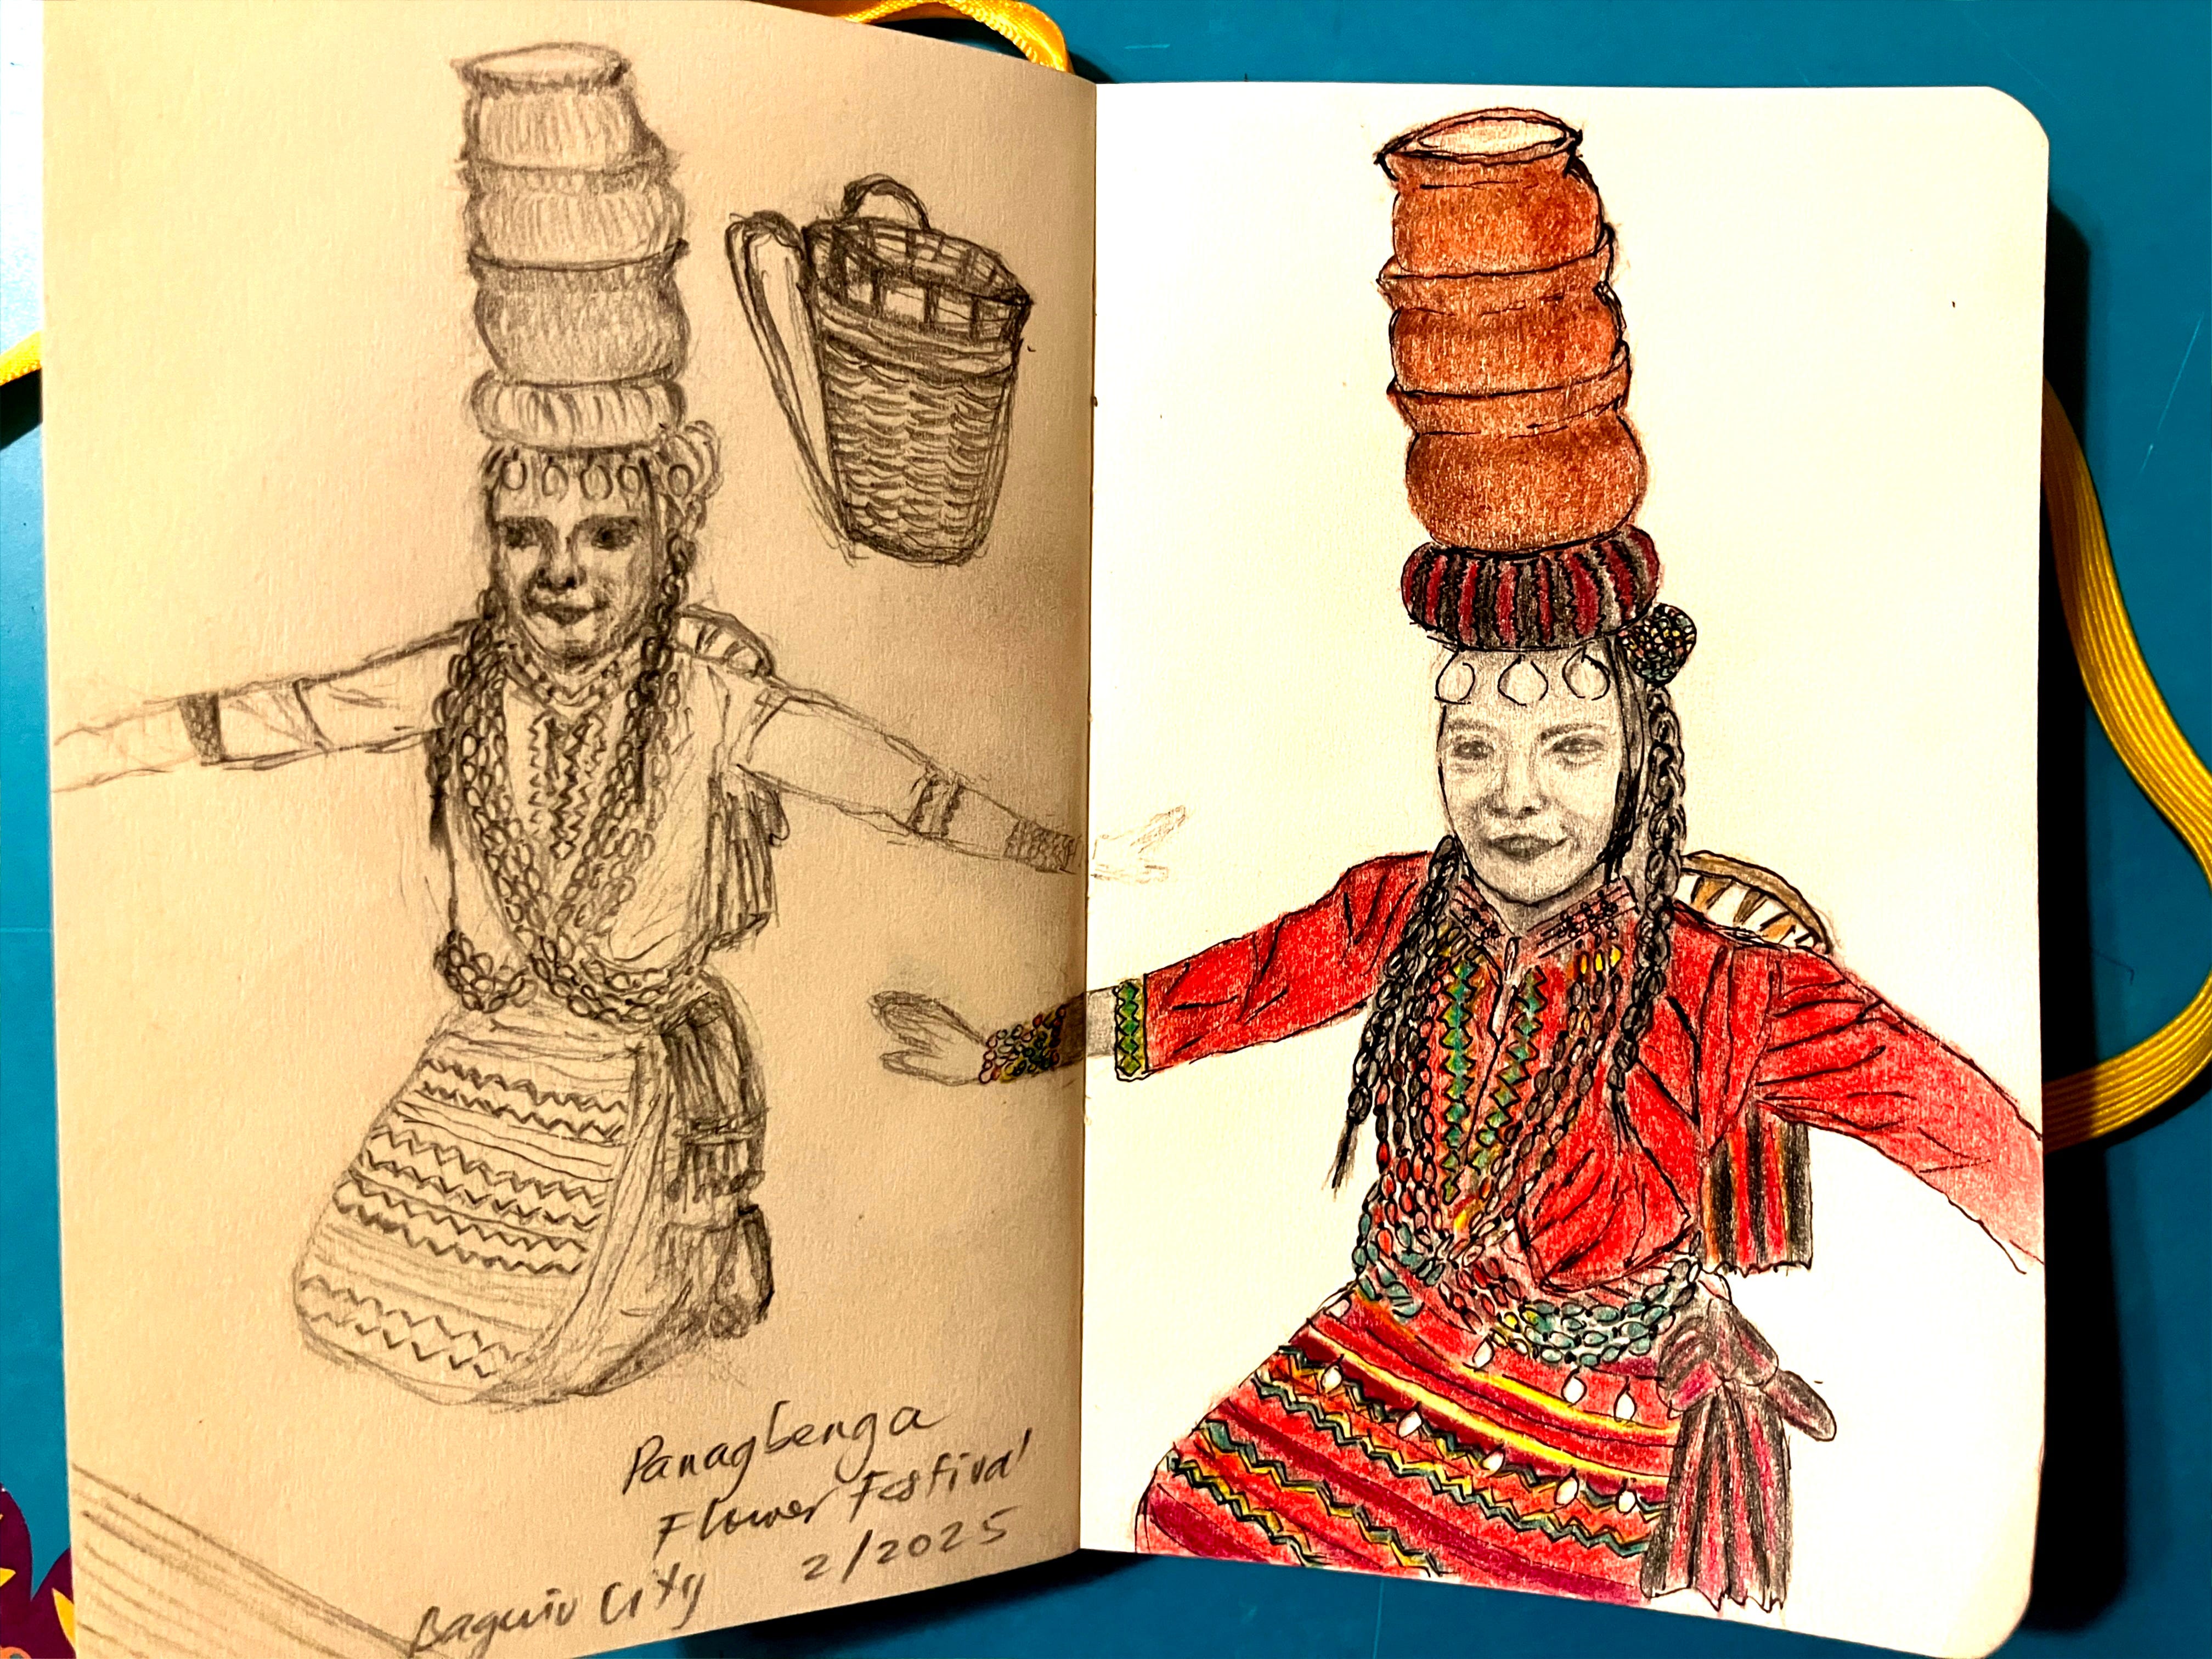 Panagbenga
Flower Festival
Baguio City 2/2025